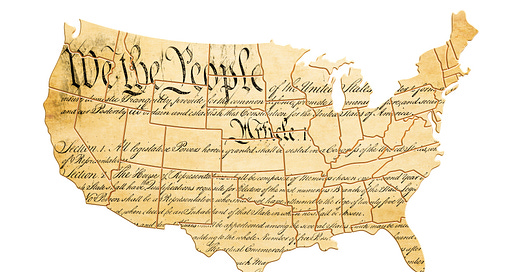 We the People of the United States
domestic Tranquility, provide for the common promote
and our Posterity, do ordain and establish this Constitution for the United States of America.
Article I
Section 1. All legislative Powers herein granted shall be vested in a Congress of the
of Representatives.
Section 2. The House of Representatives shall be composed of Members chosen every second Year
State shall have Qualifications requisite for Electors of the most numerous Branch of the State Legis
No Person shall be a Representative who shall not have attained to the Age of twenty five
when elected, be an Inhabitant of that State in which he shall be chosen.
shall be apportioned among the several States which may be
adding to the whole Number of free
actual Enumeration